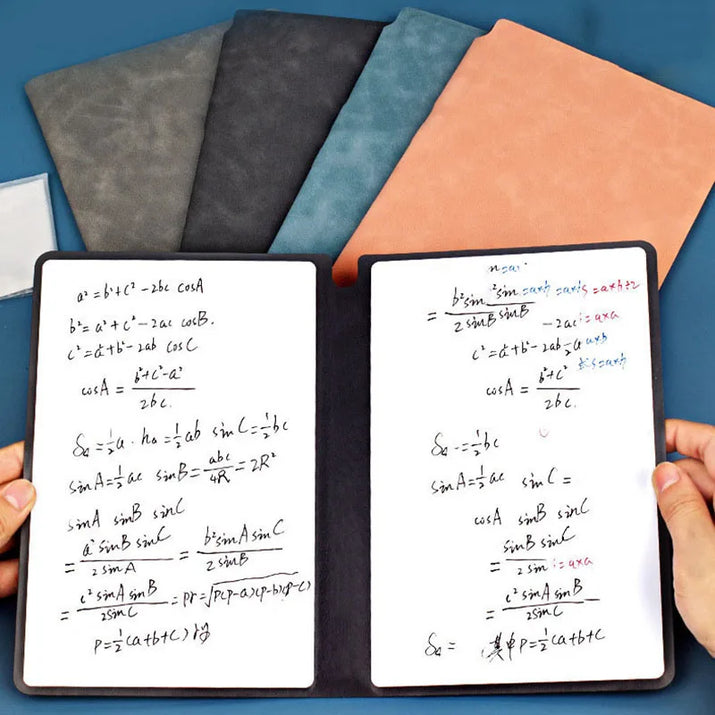 a² = b² + c² - 2bc cosA
b² = a² + c² - 2ac cosB.
c² = a² + b² - 2ab cosC
cosA = (b² + c² - a²)/(2bc.)
S△ = ½a · ha = ½ab sinC = ½bc
sinA = ½ac sinB = abc/4R = 2R²
sinA sinB sinC
= (a² sinB sinC)/(2sinA) = (b² sinA sinC)/(2sinB)
= (c² sinA sinB)/(2sinC) = pr = √(P(P-a)(P-b)(P-c))
P = ½(a+b+c)
= (b² sin² sin)/(2sinB sinB) = a×b = a×b S = a×b÷2
-2ac = a×a
c² = a² + b² - 2ab ½a a×b
S = a×b
cosA = (b² + c²)/(2bc.)
S△ -= ½bc
sinA = ½ac sinC =
cosA sinB sinC
= (sinB sinC)/(2sin) = a×a
= (c² sinA sinB)/(2sinC)
S△ = 其中P = ½(a+b+c